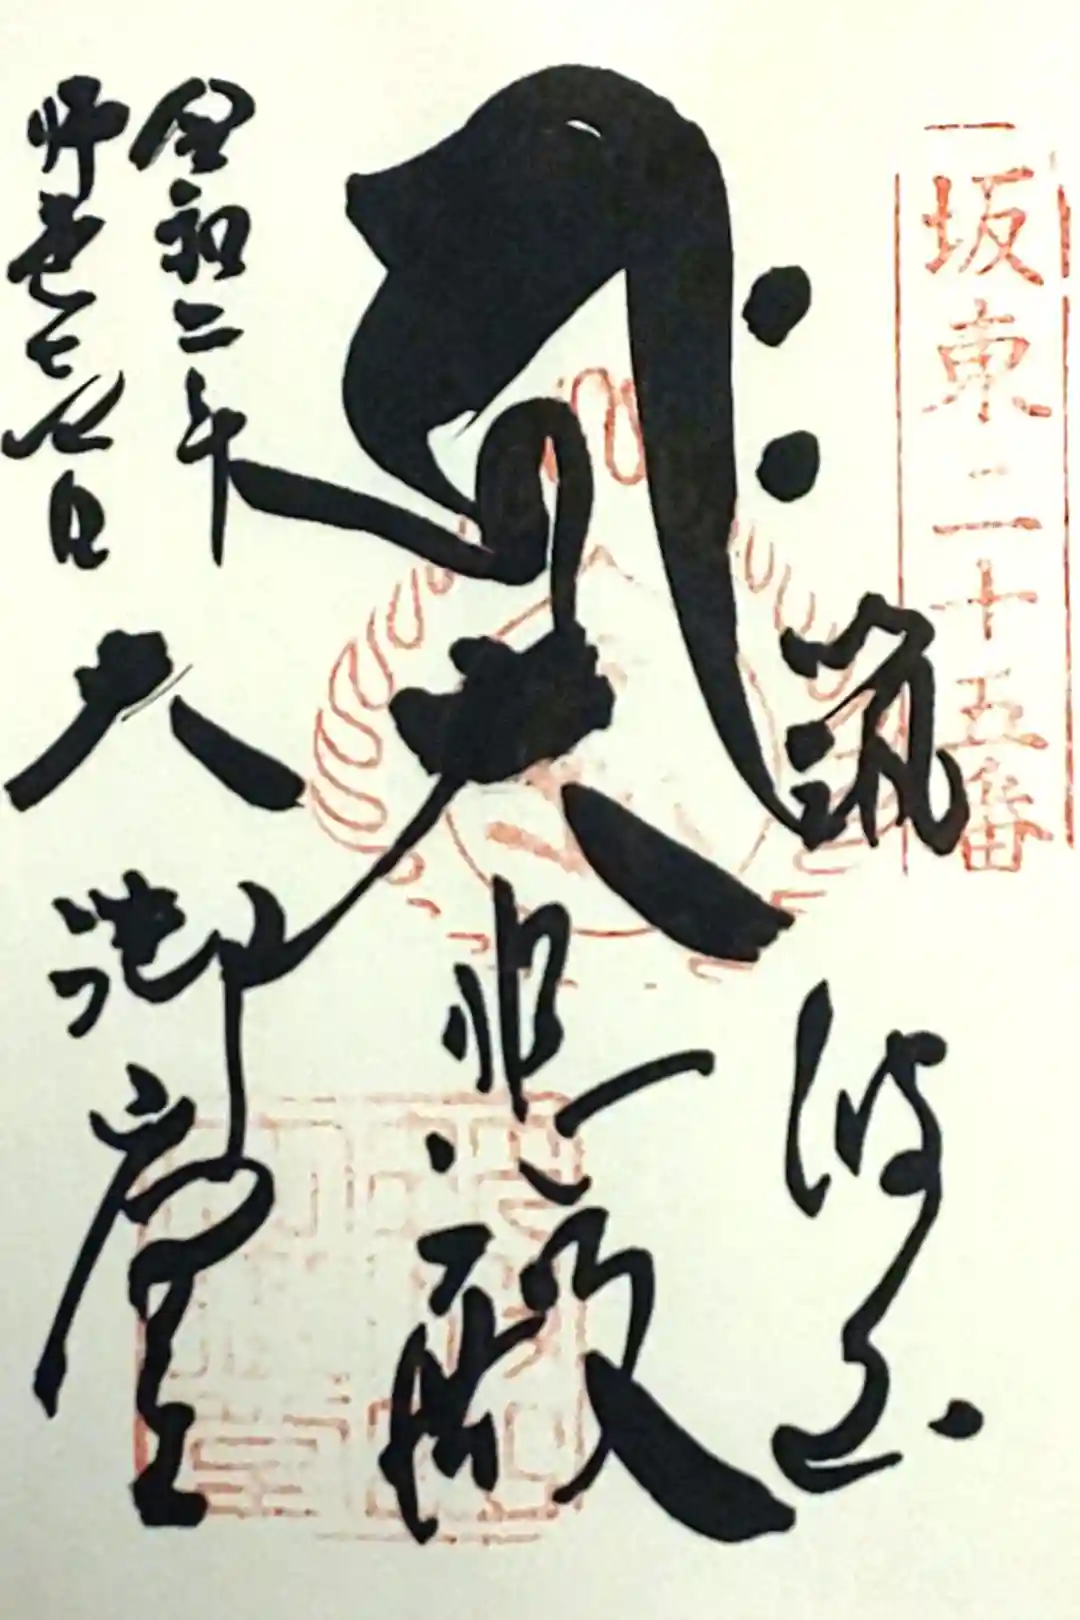 坂東二十五番
筑波山
大悲殿
令和二年
大御堂